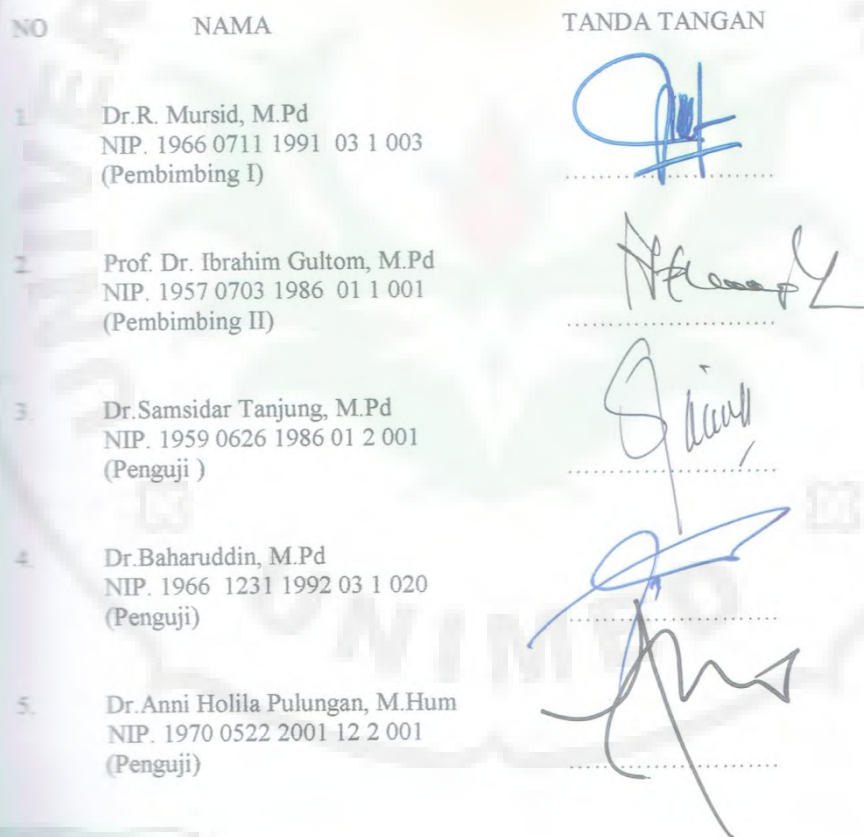 NO NAMA TANDA TANGAN
1. Dr.R. Mursid, M.Pd
NIP. 1966 0711 1991 03 1 003
(Pembimbing I)
2. Prof. Dr. Ibrahim Gultom, M.Pd
NIP. 1957 0703 1986 01 1 001
(Pembimbing II)
3. Dr.Samsidar Tanjung, M.Pd
NIP. 1959 0626 1986 01 2 001
(Penguji )
4. Dr.Baharuddin, M.Pd
NIP. 1966 1231 1992 03 1 020
(Penguji)
5. Dr.Anni Holila Pulungan, M.Hum
NIP. 1970 0522 2001 12 2 001
(Penguji)
UNIMED